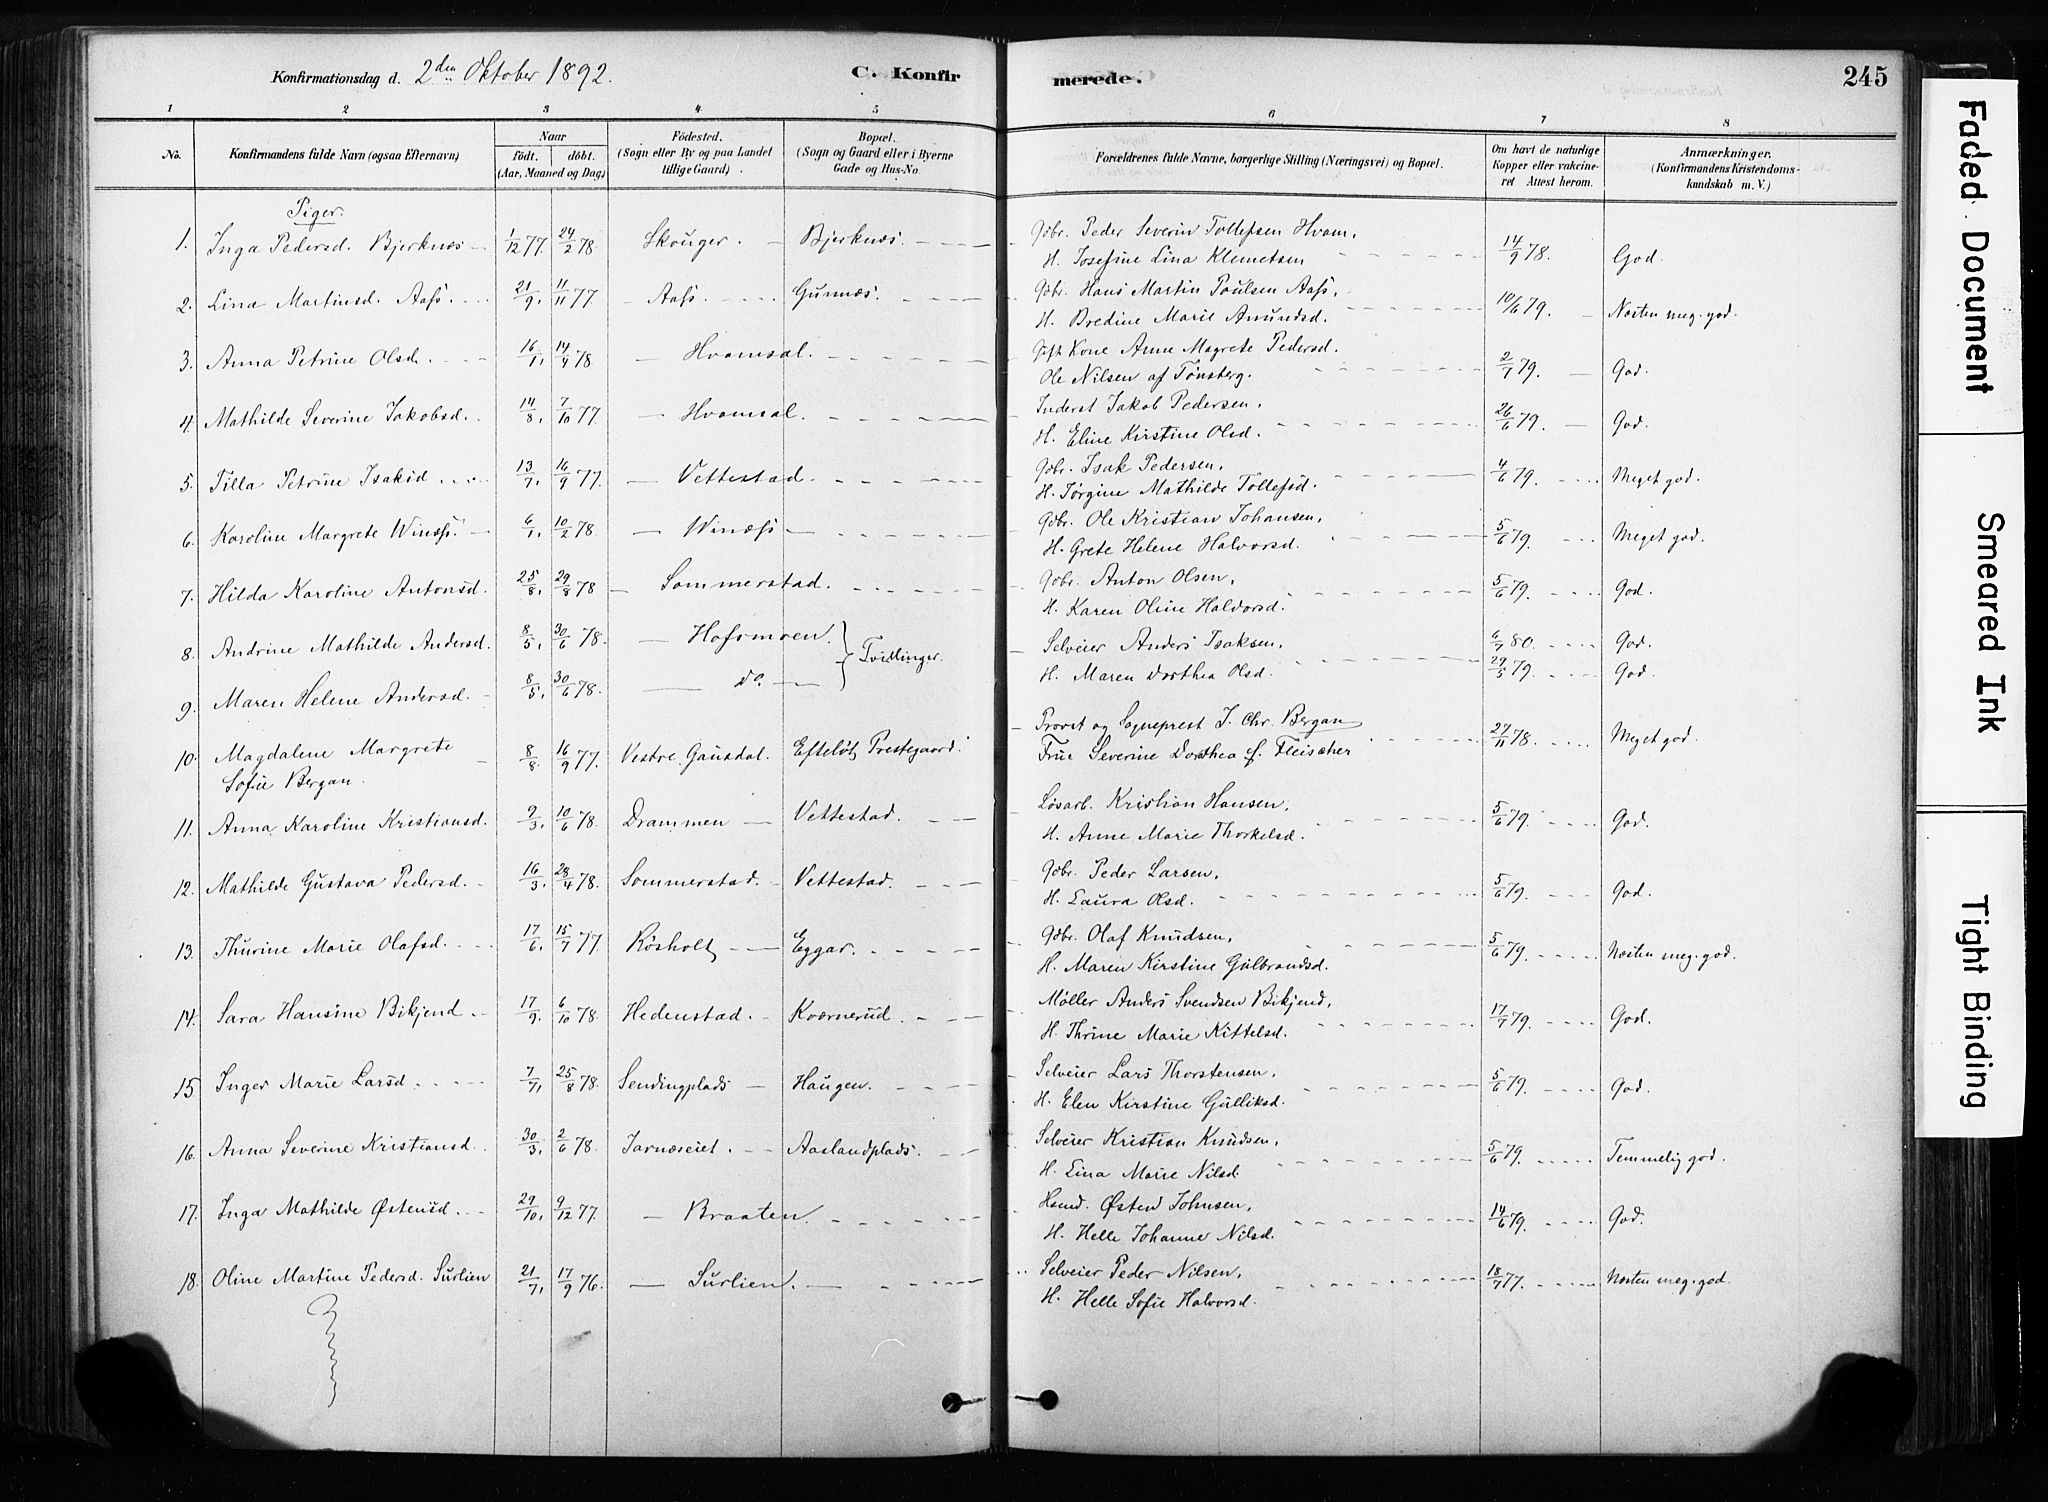 Konfirmationsdag d. 2den Oktober 1892. C. Konfirmerede. 245
1 2 3 4 5 6 7 8
No.
Konfirmandens fulde Navn (ogsaa Efternavn)
Naar født. døbt. (Aar, Maaned og Dag)
Fødested. (Sogn eller By og paa Landet tillige Gaard)
Bopæl. (Sogn og Gaard eller i Byerne Gade og Hus-No.
Forældrenes fulde Navne, borgerlige Stilling (Næringsvei) og Bopæl.
Om havt de naturlige Kopper eller vakcineret Attest herom.
Anmærkninger. (Konfirmandens Kristendomskundskab m. V.)
Piger.
1. Inga Pedersd. Bjerknæs 1/12 77. 24/2 78 Skouger. Bjerknæs. Gbr. Peder Severin Tollefsen Hvam, 14/9 78. God.
H. Josefine Lina Klemetsen
2. Lina Martinsd. Aass. 21/9, 11/11 77 Aass. Gunnæs. Gbr. Hans Martin Paulsen Aass, 10/6 79 Næsten meg. god.
H. Bredine Marie Amundsd.
3. Anna Petrine Olsd. 16/1, 14/4 78 Hvamsal. Gift Kone Anne Magrete Pedersd. 2/7 79. God.
Ole Nilsen af Tønsberg.
4. Mathilde Severine Jakobsd. 14/8, 7/10 77. Hvamsal. Inderst Jakob Pedersen, 26/6 79. God.
H. Eline Kirstine Olsd.
5. Tilla Petrine Isaksd. 13/7, 16/9 77. Vettestad. Gbr. Isak Pedersen, 4/6 79. Meget god.
H. Jørgine Mathilde Tollefsd.
6. Karoline Margrete Winæss. 6/1, 10/2 78. Winæss Gbr. Ole Kristian Johansen, 5/6 79. Meget god.
H. Grete Helene Halvorsd.
7. Hilda Karoline Antonsd. 25/8, 29/8 78 Sommerstad. Gbr. Anton Olsen, 5/6 79. God.
H. Karen Oline Halvorsd.
8. Andrine Mathilde Andersd. 8/5, 30/6 78. Hofsmoen. Tvillinger. Selveier Anders Isaksen, 6/7 80. God.
9. Maren Helene Andersd. 8/5, 30/6 78. do. H. Maren Dorthea Olsd. 29/5 79. God.
10. Magdalene Margrete Sofie Bergan. 8/8. 16/9 77. Vestre Gausdal. Efteløt Prestegaard. Provst og Sogneprest J. Chr. Bergan 27/11 78. Meget god.
Frue Severine Dorthea f. Fleischer
11. Anna Karoline Kristiansd. 9/3, 10/6 78. Drammen Vettestad. Løsarb. Kristian Hansen, 5/6 79. God.
H. Anne Marie Thorkelsd.
12. Mathilde Gustava Pedersd. 16/3, 28/4 78. Sommerstad. Vettestad. Gbr. Peder Larsen, 5/6 79. God.
H. Laura Olsd.
13. Thurine Marie Olafsd. 17/6, 15/7 77 Røsholt Eggar. Gbr. Olaf Knudsen, 5/6 79. Næsten meg. god.
H. Maren Kirstine Gulbrandsd.
14. Sara Hansine Bikjend 17/9. 6/10 78. Hedenstad. Kværnerud. Møller Anders Svendsen Bikjend, 17/7 79. God.
H. Thrine Marie Kittelsd.
15. Inger Marie Larsd. 7/7, 25/8 78. Sendingplads Haugen. Selveier Lars Thorstensen, 5/6 79. God.
H. Elen Kirstine Gulliksd.
16. Anna Severine Kristiansd. 30/3, 2/6 78. Jarnæseiet. Aaslandplads. Selveier Kristian Knudsen, 5/6 79. Temmelig god.
H. Lina Marie Nilsd.
17. Inga Mathilde Østensd. 29/10, 9/12 77. Braaten. Hsmd. Østen Johnsen, 14/6 79. God.
H. Helle Johanne Nilsd.
18. Oline Martine Pedersd. Surlien 21/7, 17/9 76. Surlien. Selveier Peder Nilsen, 18/7 77. Næsten meg. god.
H. Helle Sofie Halvorsd.
Faded Document
Smeared Ink
Tight Binding